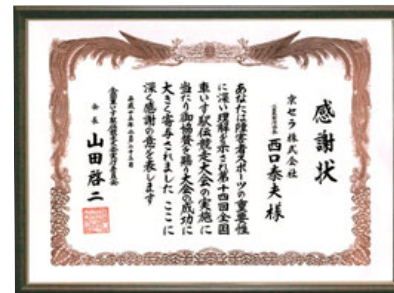 感謝状
京セラ株式会社
西口泰夫様
あなたは障害者スポーツの重要性
に深い理解を示され第十四回全国
車いす駅伝競走大会の実施に
当たり御協賛を賜り大会の成功に
大きく寄与されました ここに
深く感謝の意を表します
平成十五年二月二十三日
全国車いす駅伝競走大会実行委員会
会長 山田啓二